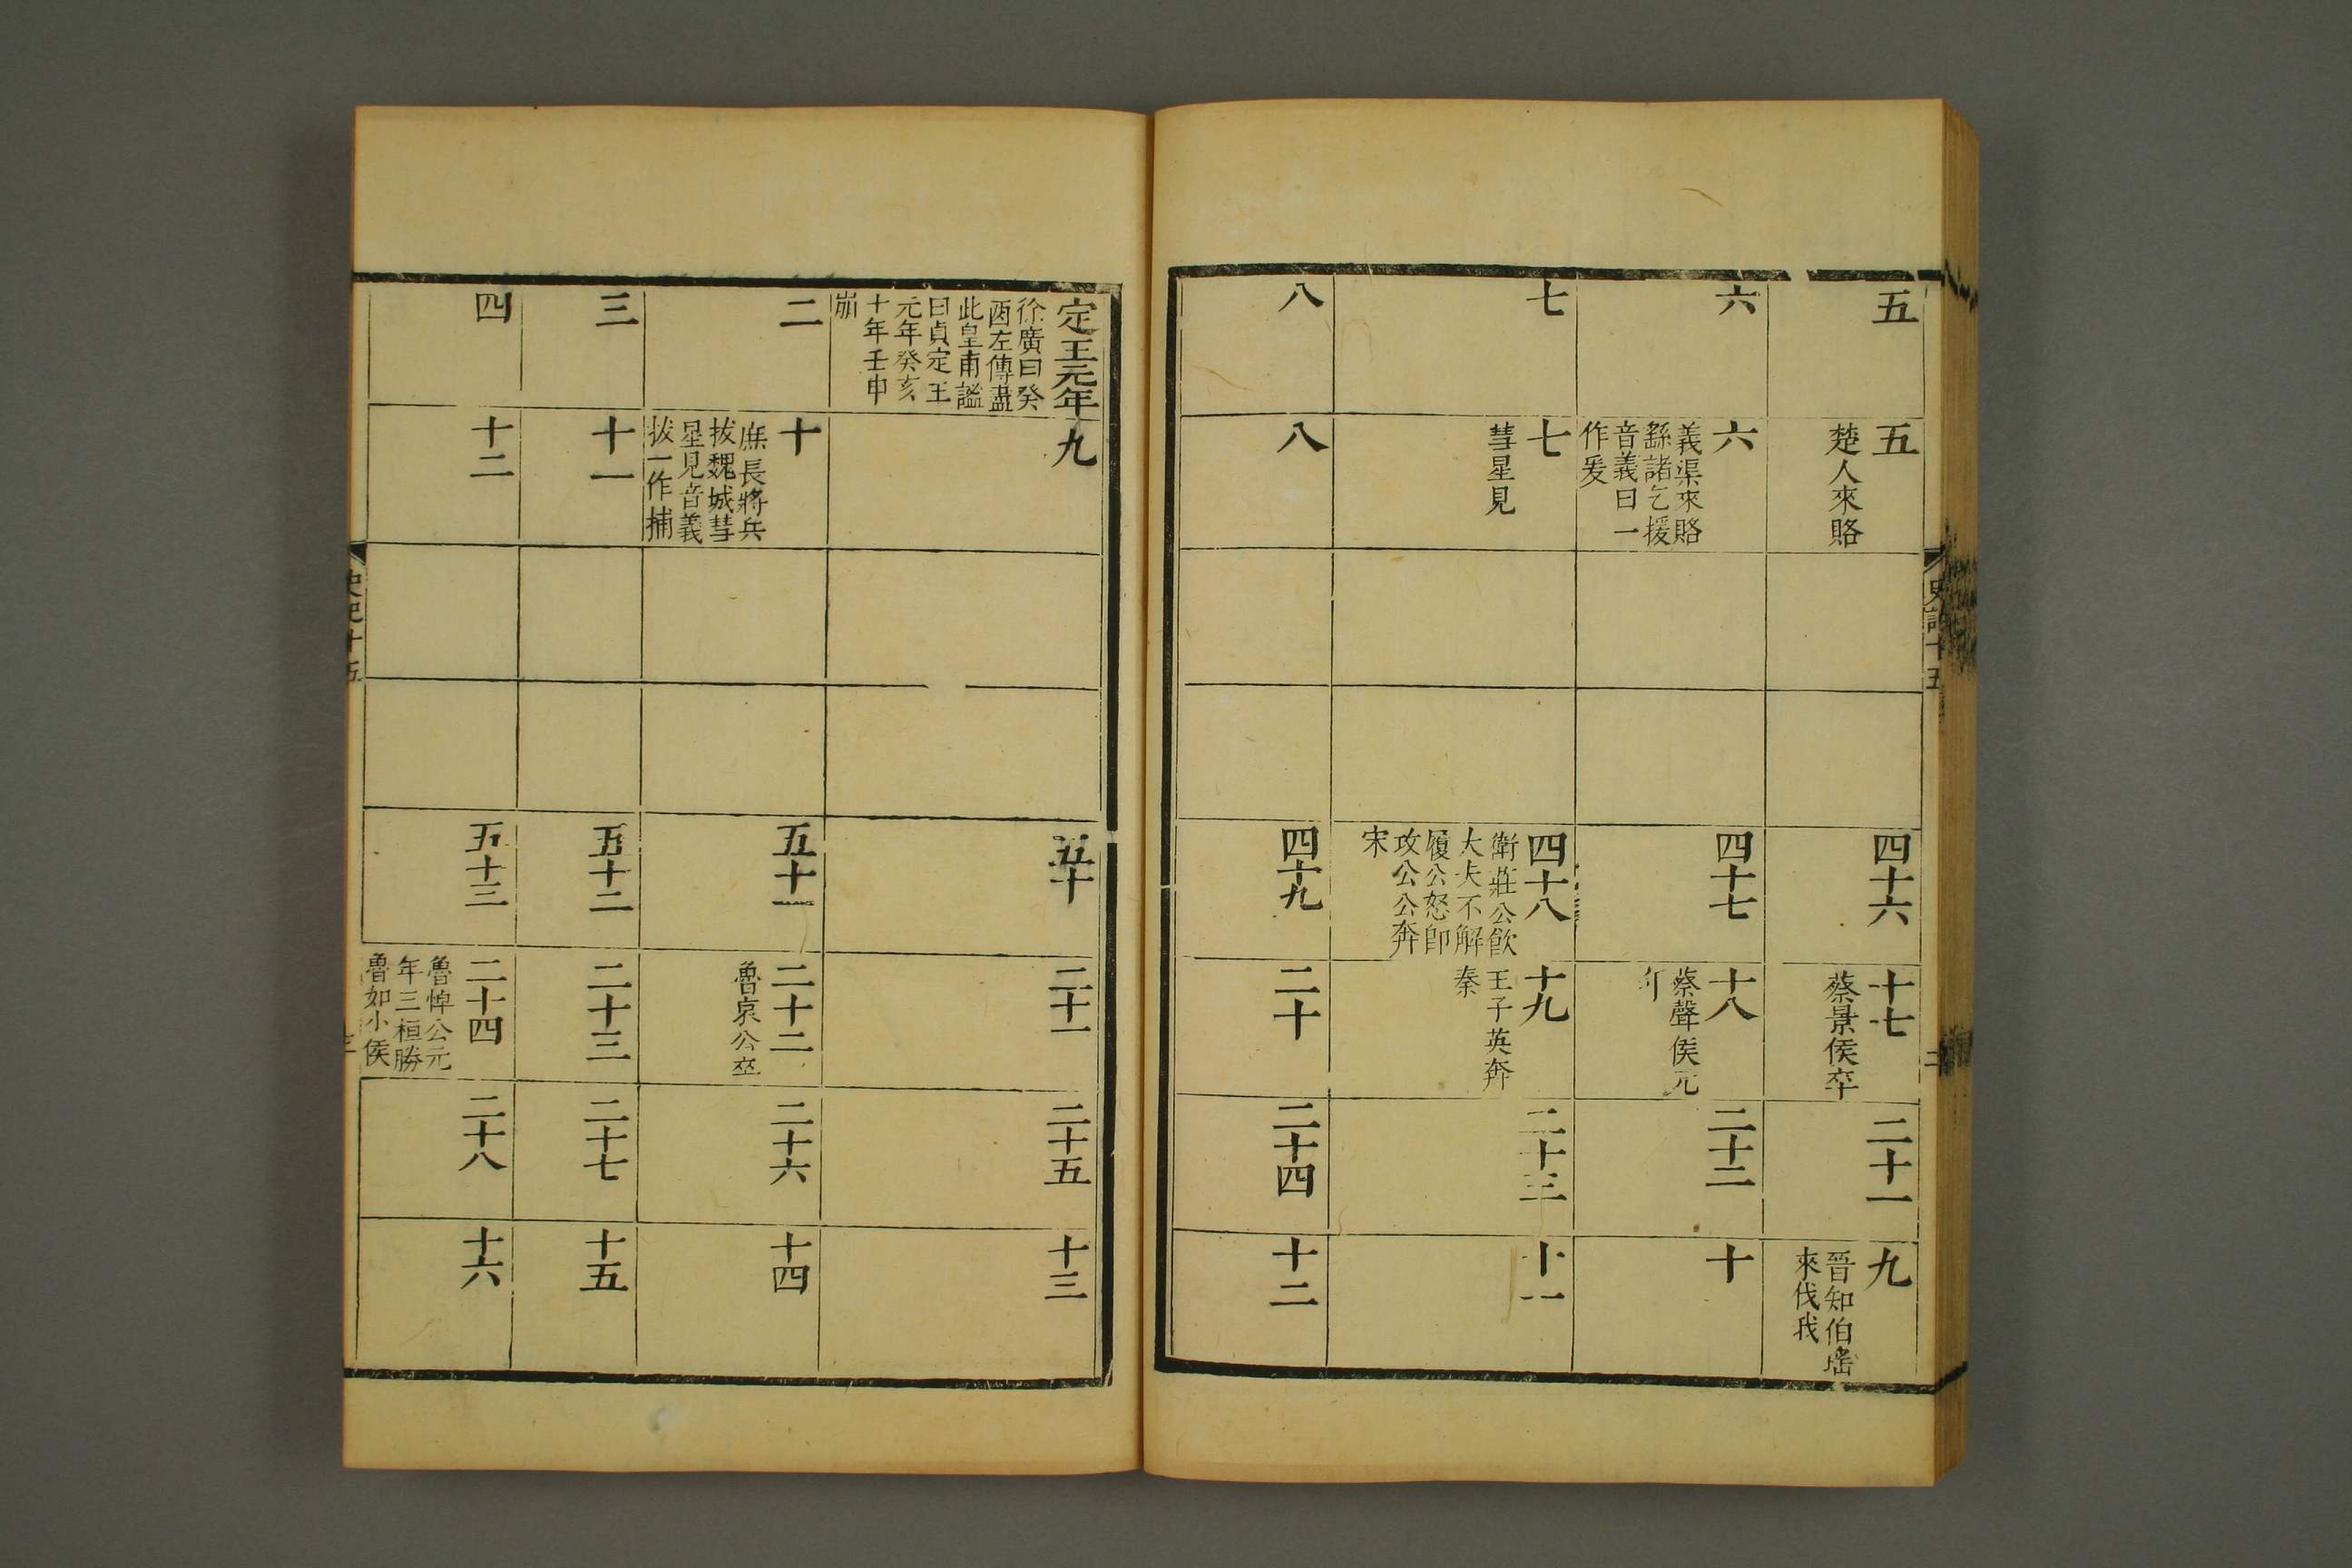 五
五
楚人來賂
四十六
十七
蔡景侯卒
二十一
九
晉知伯瑤
來伐我
六
六
義渠來賂
繇諸乞援
音義曰一
作爰
四十七
十八
蔡聲侯元
年
二十二
十
七
七
彗星見
四十八
衛莊公飮
大夫不解
履公怒卽
攻公公奔
宋
十九
王子英奔
秦
二十三
十一
八
八
四十九
二十
二十四
十二
定王元年
徐廣曰癸
酉左傳盡
此皇甫謐
曰貞定王
元年癸亥
十年壬申
崩
九
五十
二十一
二十五
十三
二
十
庶長將兵
拔魏城彗
星見音義
拔一作捕
五十一
二十二
魯哀公卒
二十六
十四
三
十一
五十二
二十三
二十七
十五
四
十二
五十三
二十四
魯悼公元
年三桓勝
魯如小侯
二十八
十六
史記十五